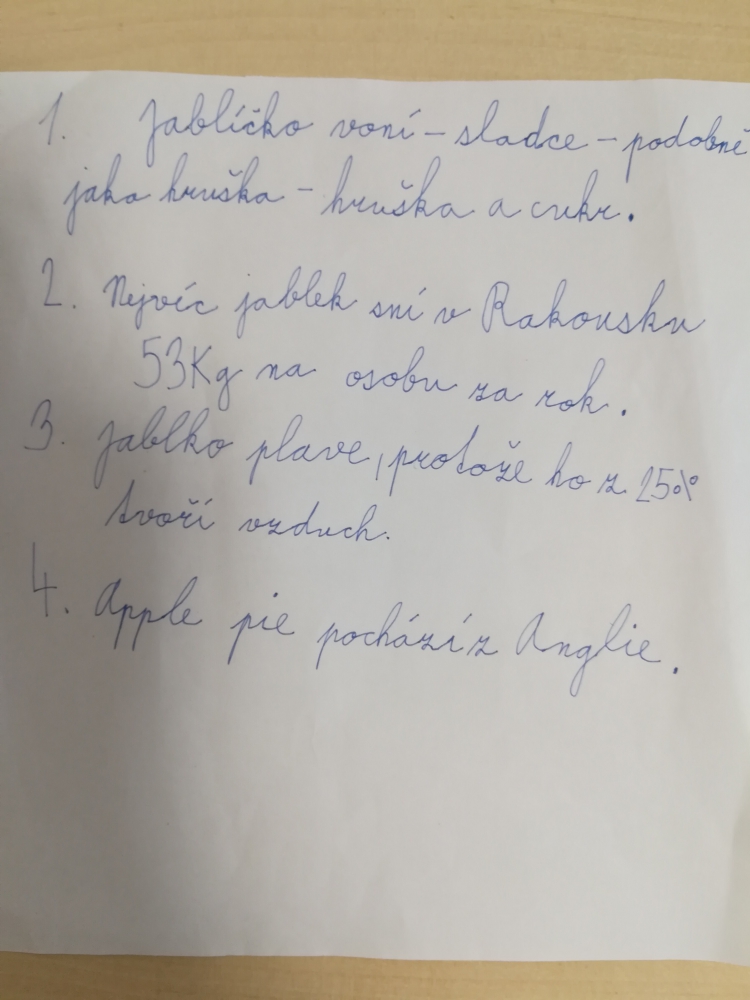 1. Jablíčko voní - sladce - podobně
jako hruška - hruška a cukr.
2. Nejvíc jablek sní v Rakousku
53Kg na osobu za rok.
3. Jablko plave, protože ho z 25%
tvoří vzduch.
4. Apple pie pochází z Anglie.